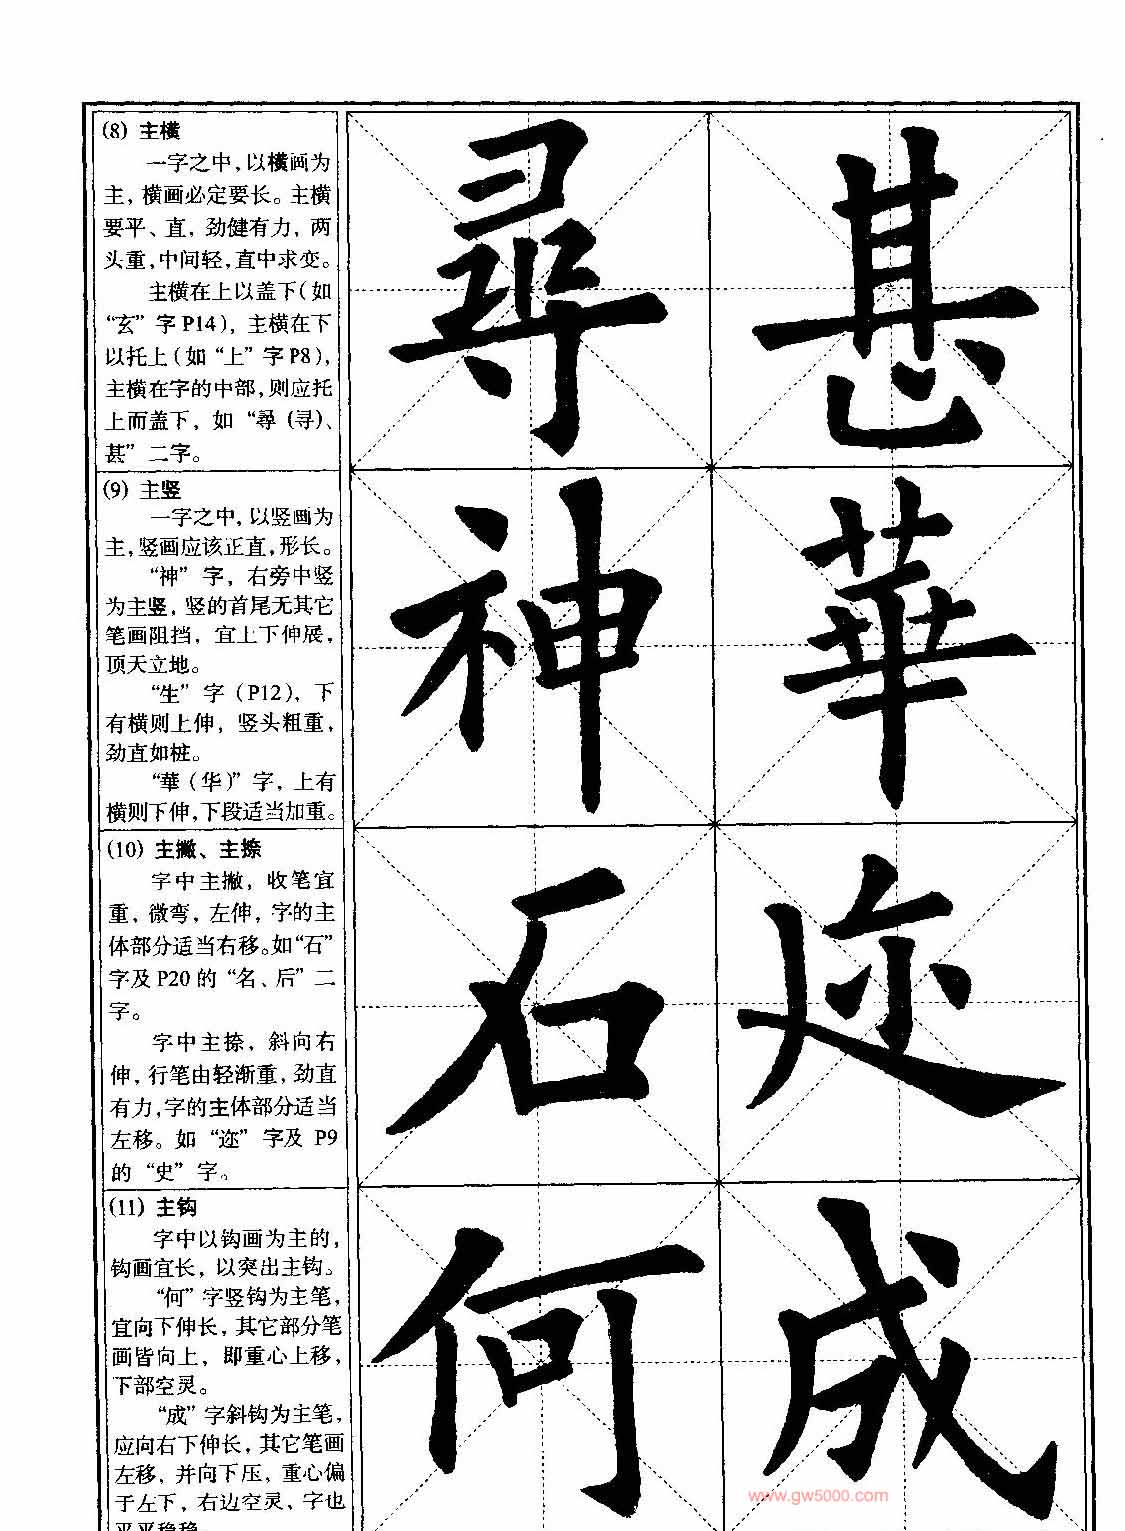 (8) 主横
一字之中,以横画为
主,横画必定要长。主横
要平、直,劲健有力,两
头重,中间轻,直中求变。
主横在上以盖下(如
“玄”字P14),主横在下
以托上(如“上”字P8),
主横在字的中部,则应托
上而盖下,如“尋(寻)、
甚”二字。
尋 甚
(9) 主竖
一字之中,以竖画为
主,竖画应该正直,形长。
“神”字,右旁中竖
为主竖,竖的首尾无其它
笔画阻挡,宜上下伸展,
顶天立地。
“生”字(P12),下
有横则上伸,竖头粗重,
劲直如桩。
“華(华)”字,上有
横则下伸,下段适当加重。
神 華
(10) 主撇、主捺
字中主撇,收笔宜
重,微弯,左伸,字的主
体部分适当右移。如“石”
字及P20的“名、后”二
字。
字中主捺,斜向右
伸,行笔由轻渐重,劲直
有力,字的主体部分适当
左移。如“迩”字及P9
的“史”字。
石 迩
(11) 主钩
字中以钩画为主的,
钩画宜长,以突出主钩。
“何”字竖钩为主笔,
宜向下伸长,其它部分笔
画皆向上,即重心上移,
下部空灵。
“成”字斜钩为主笔,
应向右下伸长,其它笔画
左移,并向下压,重心偏
于左下,右边空灵,字也
平平稳稳。
何 成
www.gw5000.com